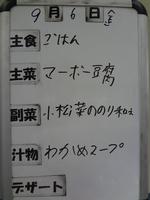 9月6日金
主食 ごはん
主菜 マーボー豆腐
副菜 小松菜ののり和え
汁物 わかめスープ
デザート